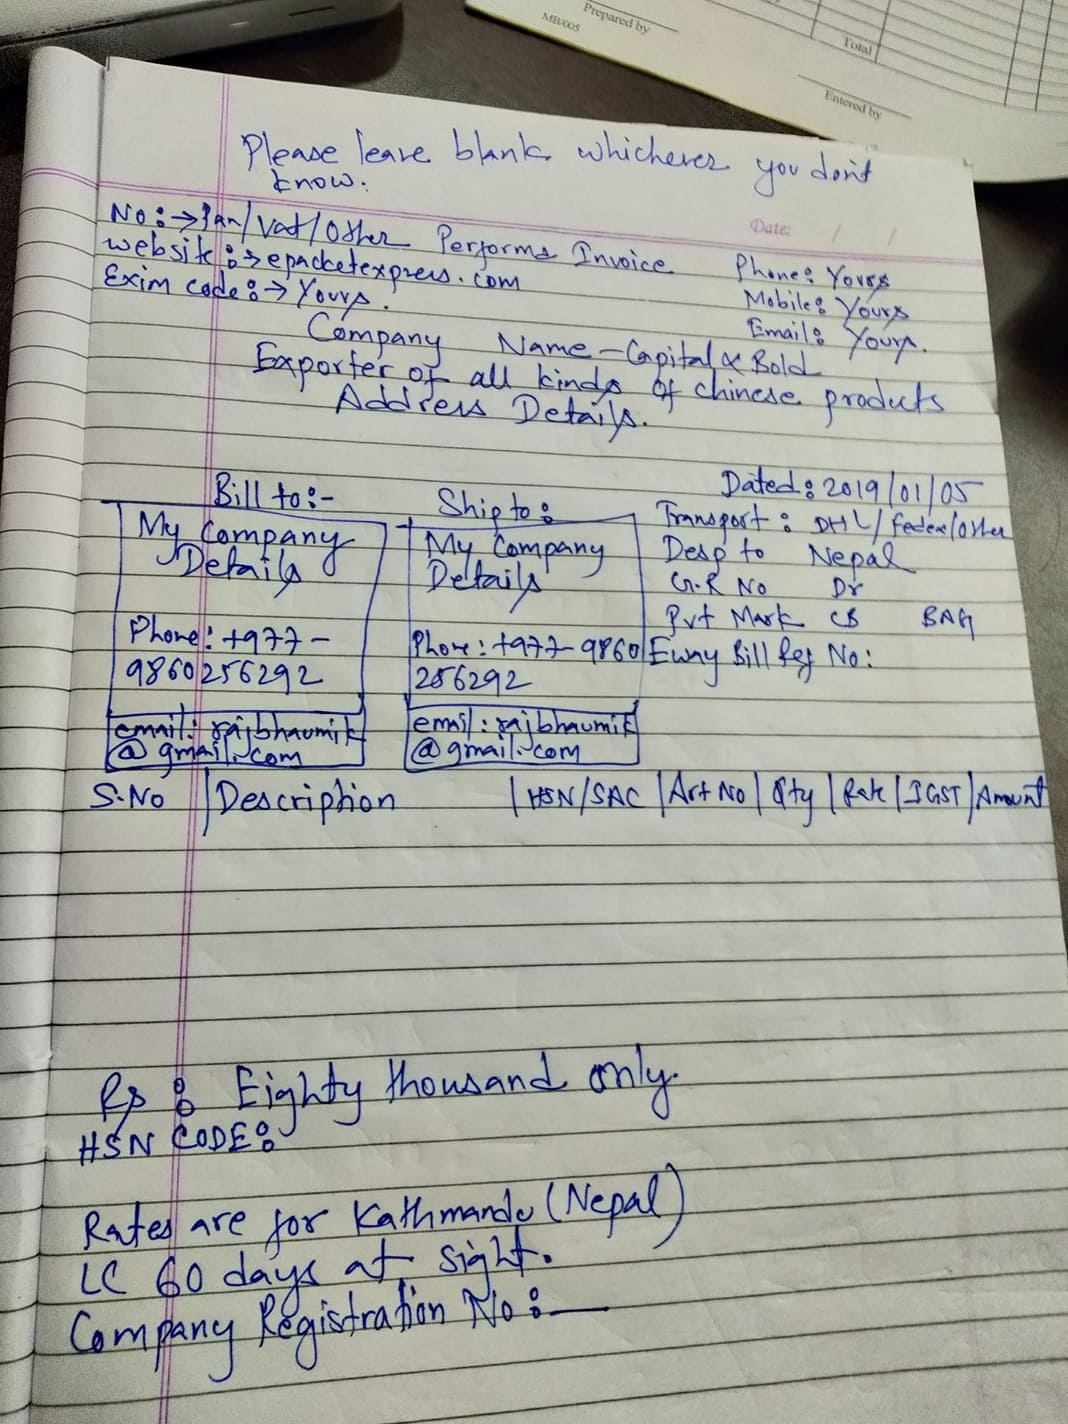 MB/005
Prepared by
Total
Entered by
Please leave blank whichever you don't
know.
Date: / /
No:→Pan/Vat/Other Performa Invoice
Phone: Yours
website:→epacketexpress.com
Mobile: Yours
Exim code:→ Yours.
Email: Yours.
Company Name – Capital & Bold
Exporter of all kinds of chinese products
Address Details.
Bill to:-
Ship to:
Dated: 2019/01/05
My Company
Details
Phone: +977-
9860256292
email: rajbhaumik
@gmail.com
My Company
Details
Phone: +977-9860
256292
email: rajbhaumik
@gmail.com
Transport: DHL/Fedex/Other
Desp to Nepal
G.R No Dr
Pvt Mark CB BAG
Eway Bill Reg No:
S.No |Description |HSN/SAC |Art No| Qty |Rate |IGST|Amount
Rs: Eighty thousand only.
HSN CODE:
Rates are for Kathmandu (Nepal)
LC 60 days at sight.
Company Registration No:—